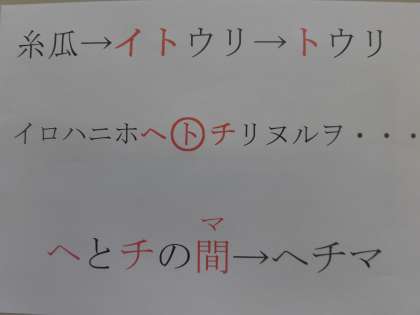 糸瓜→イトウリ→トウリ
イロハニホヘトチリヌルヲ・・・
マ
ヘとチの間→ヘチマ